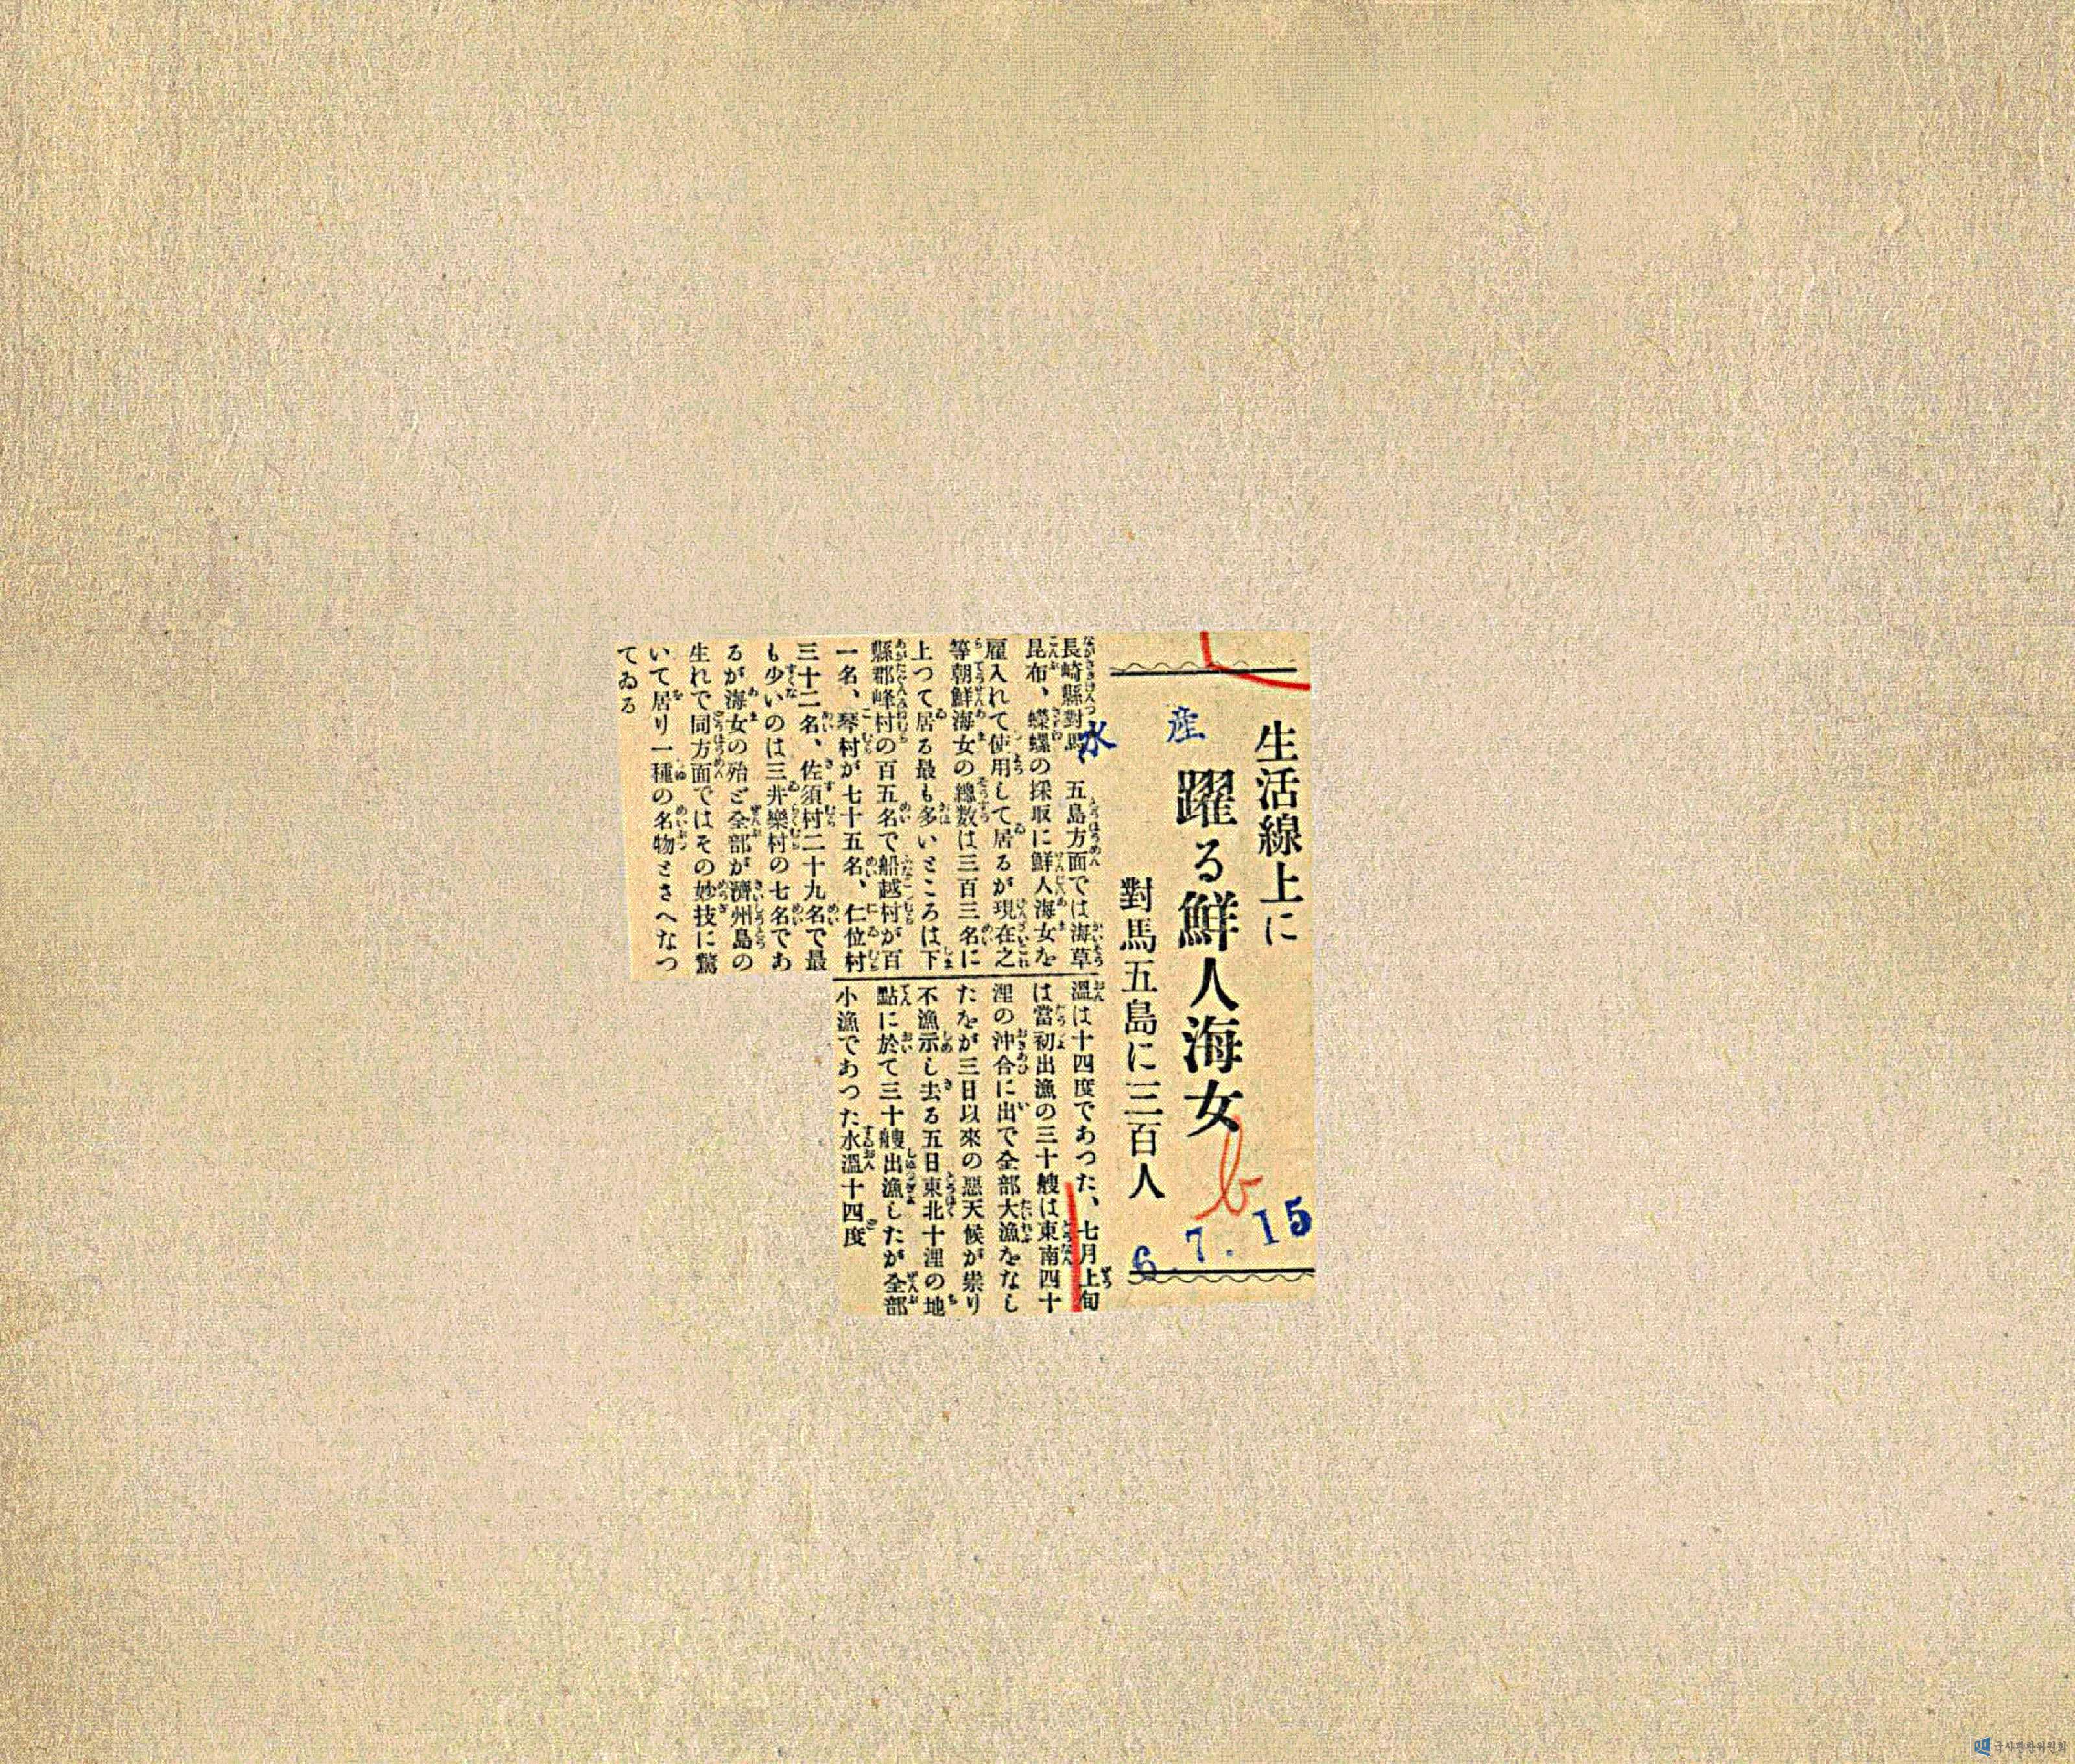 生活線上に
躍る鮮人海女
對馬五島に三百人
水産
6.7.15
b
長崎縣對馬 五島方面では海草
昆布、蠑螺の採取に鮮人海女を
雇入れて使用して居るが現在之
等朝鮮海女の總數は三百三名に
上つて居る最も多いところは下
縣郡峰村の百五名で船越村が百
一名、琴村が七十五名、仁位村
三十二名、佐須村二十九名で最
も少いのは三井樂村の七名であ
るが海女の殆ど全部が濟州島の
生れで同方面ではその妙技に驚
いて居り一種の名物とさへなつ
てゐる
溫は十四度であつた、七月上旬
は當初出漁の三十艘は東南四十
浬の沖合に出で全部大漁をなし
たるが三日以來の惡天候が祟り
不漁示し去る五日東北十浬の地
點に於て三十艘出漁したが全部
小漁であつた水溫十四度
국사편찬위원회